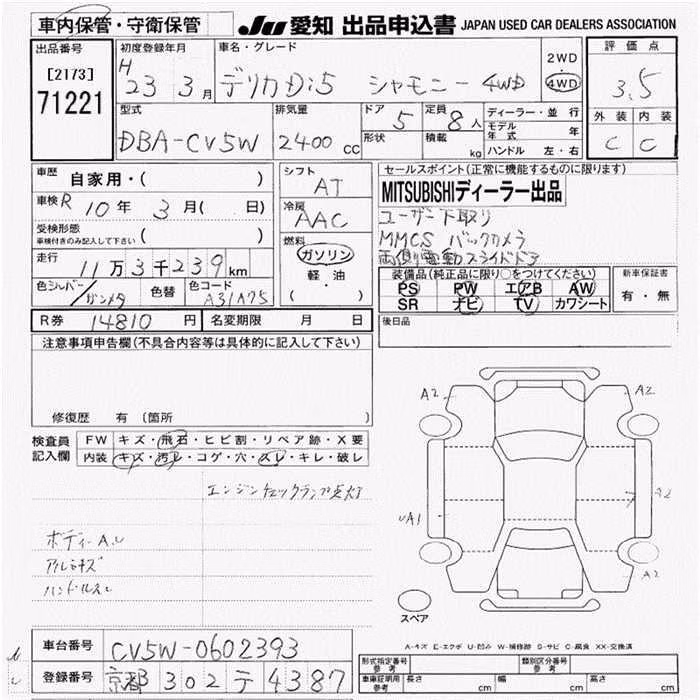 車内保管・守衛保管
JU 愛知 出品申込書 JAPAN USED CAR DEALERS ASSOCIATION
出品番号
[2173]
71221
初度登録年月
H 23 3月
車名・グレード
デリカD:5 シャモニー 4WD
2WD
4WD
評価点
3.5
外装 内装
C C
型式
DBA-CV5W
排気量
2400 CC
ドア
5
形状
定員
8人
積載
kg
ディーラー・並行
モデル年式 年
ハンドル 左・右
車歴
自家用・( )
車検 R 10年 3月( 日)
受検形態
車検付きのみ記入して下さい ( )
走行
11万3千239km
色 シルバー/ガンメタ
色替
色コード
A31A75
シフト
AT
冷房
AAC
燃料
ガソリン
軽油
( )
セールスポイント(正常に機能するものに限ります)
MITSUBISHIディーラー出品
ユーザー下取り
MMCS バックカメラ
両側電動スライドドア
装備品(純正品に限り○をつけてください)
PS PW エアB AW
SR ナビ TV カワシート
新車保証書
有・無
R券 14810円
名変期限 月 日
後日品
注意事項申告欄(不具合内容等は具体的に記入して下さい)
修復歴 有 (箇所 )
検査員記入欄
FW キズ・飛石・ヒビ割・リペア跡・X要
内装 キズ・汚レ・コゲ・穴・スレ・キレ・破レ
エンジンチェックランプ点灯
ボディーA.U
アルミキズ
ハンドルスレ
A2
A2
UA1
A2
A2
スペア
A-キズ E-エクボ U-凹み W-補修跡 S-サビ C-腐食 XX-交換済
車台番号
CV5W-0602393
登録番号
京都 302 テ 4387
型式指定番号 参考
類別区分番号 参考
車庫証明用 参考
長さ cm
幅 cm
高さ cm